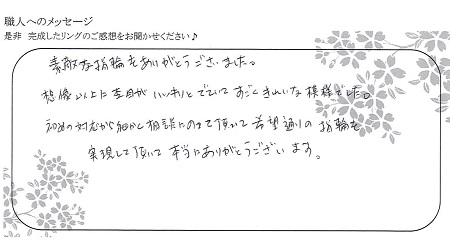 職人へのメッセージ
是非 完成したリングのご感想をお聞かせください♪
素敵な指輪をありがとうございました。
想像以上に杢目がハッキリとでていてすごくきれいな模様でした。
初めの対応から細かく相談にのって頂いて希望通りの指輪を
実現して頂いて本当にありがとうございます。